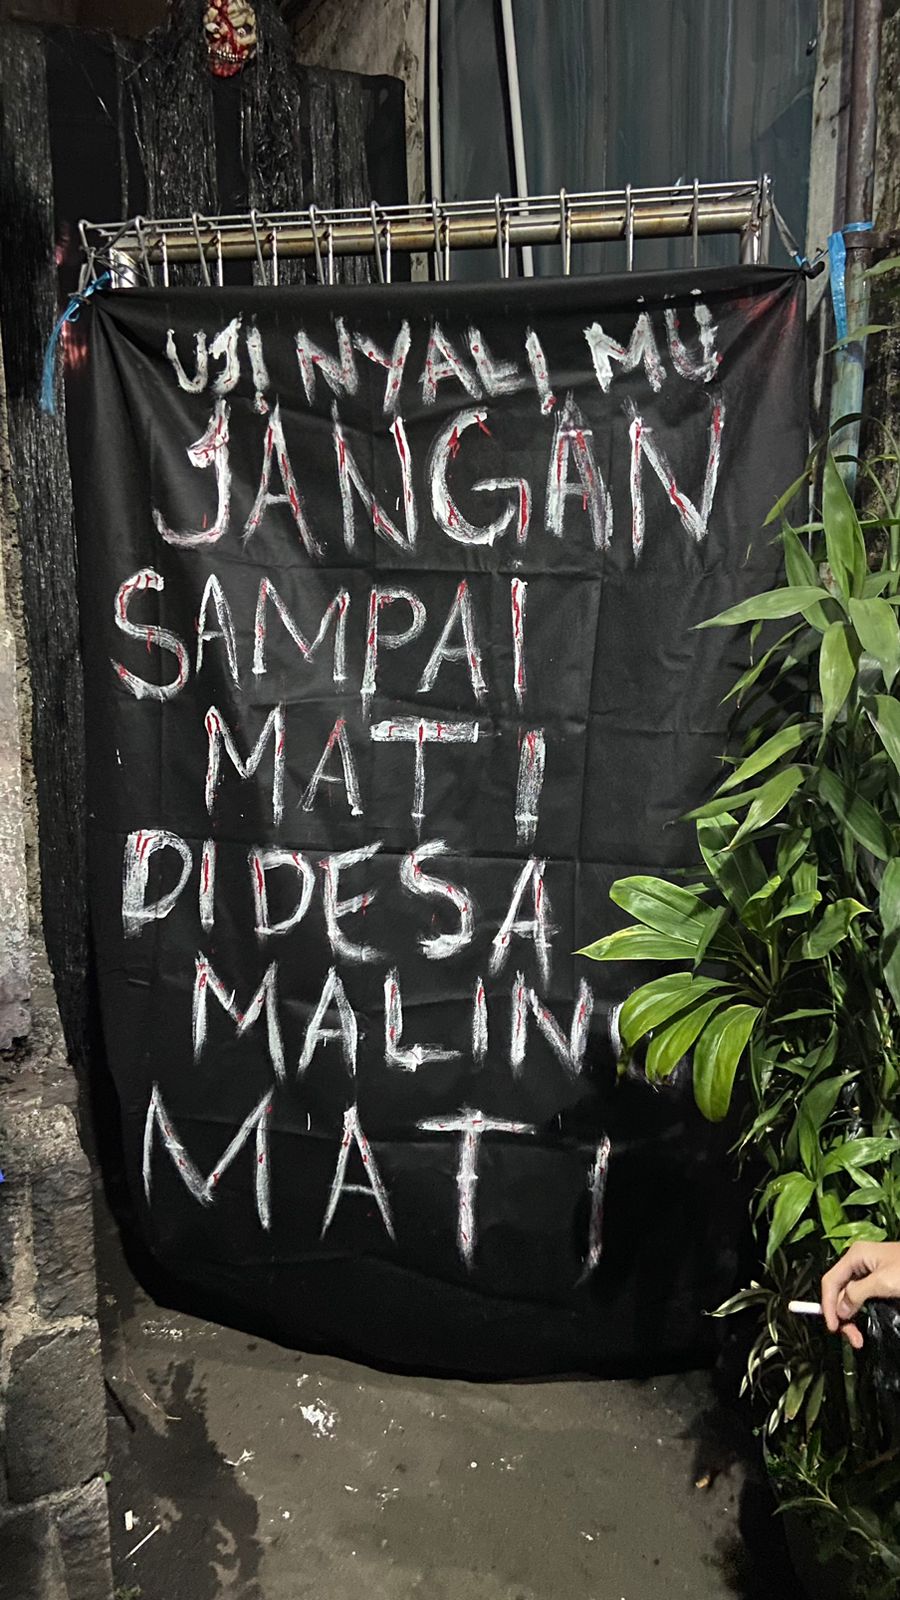 UJI NYALI MU
JANGAN
SAMPAI
MATI
DI DESA
MALIN
MATI